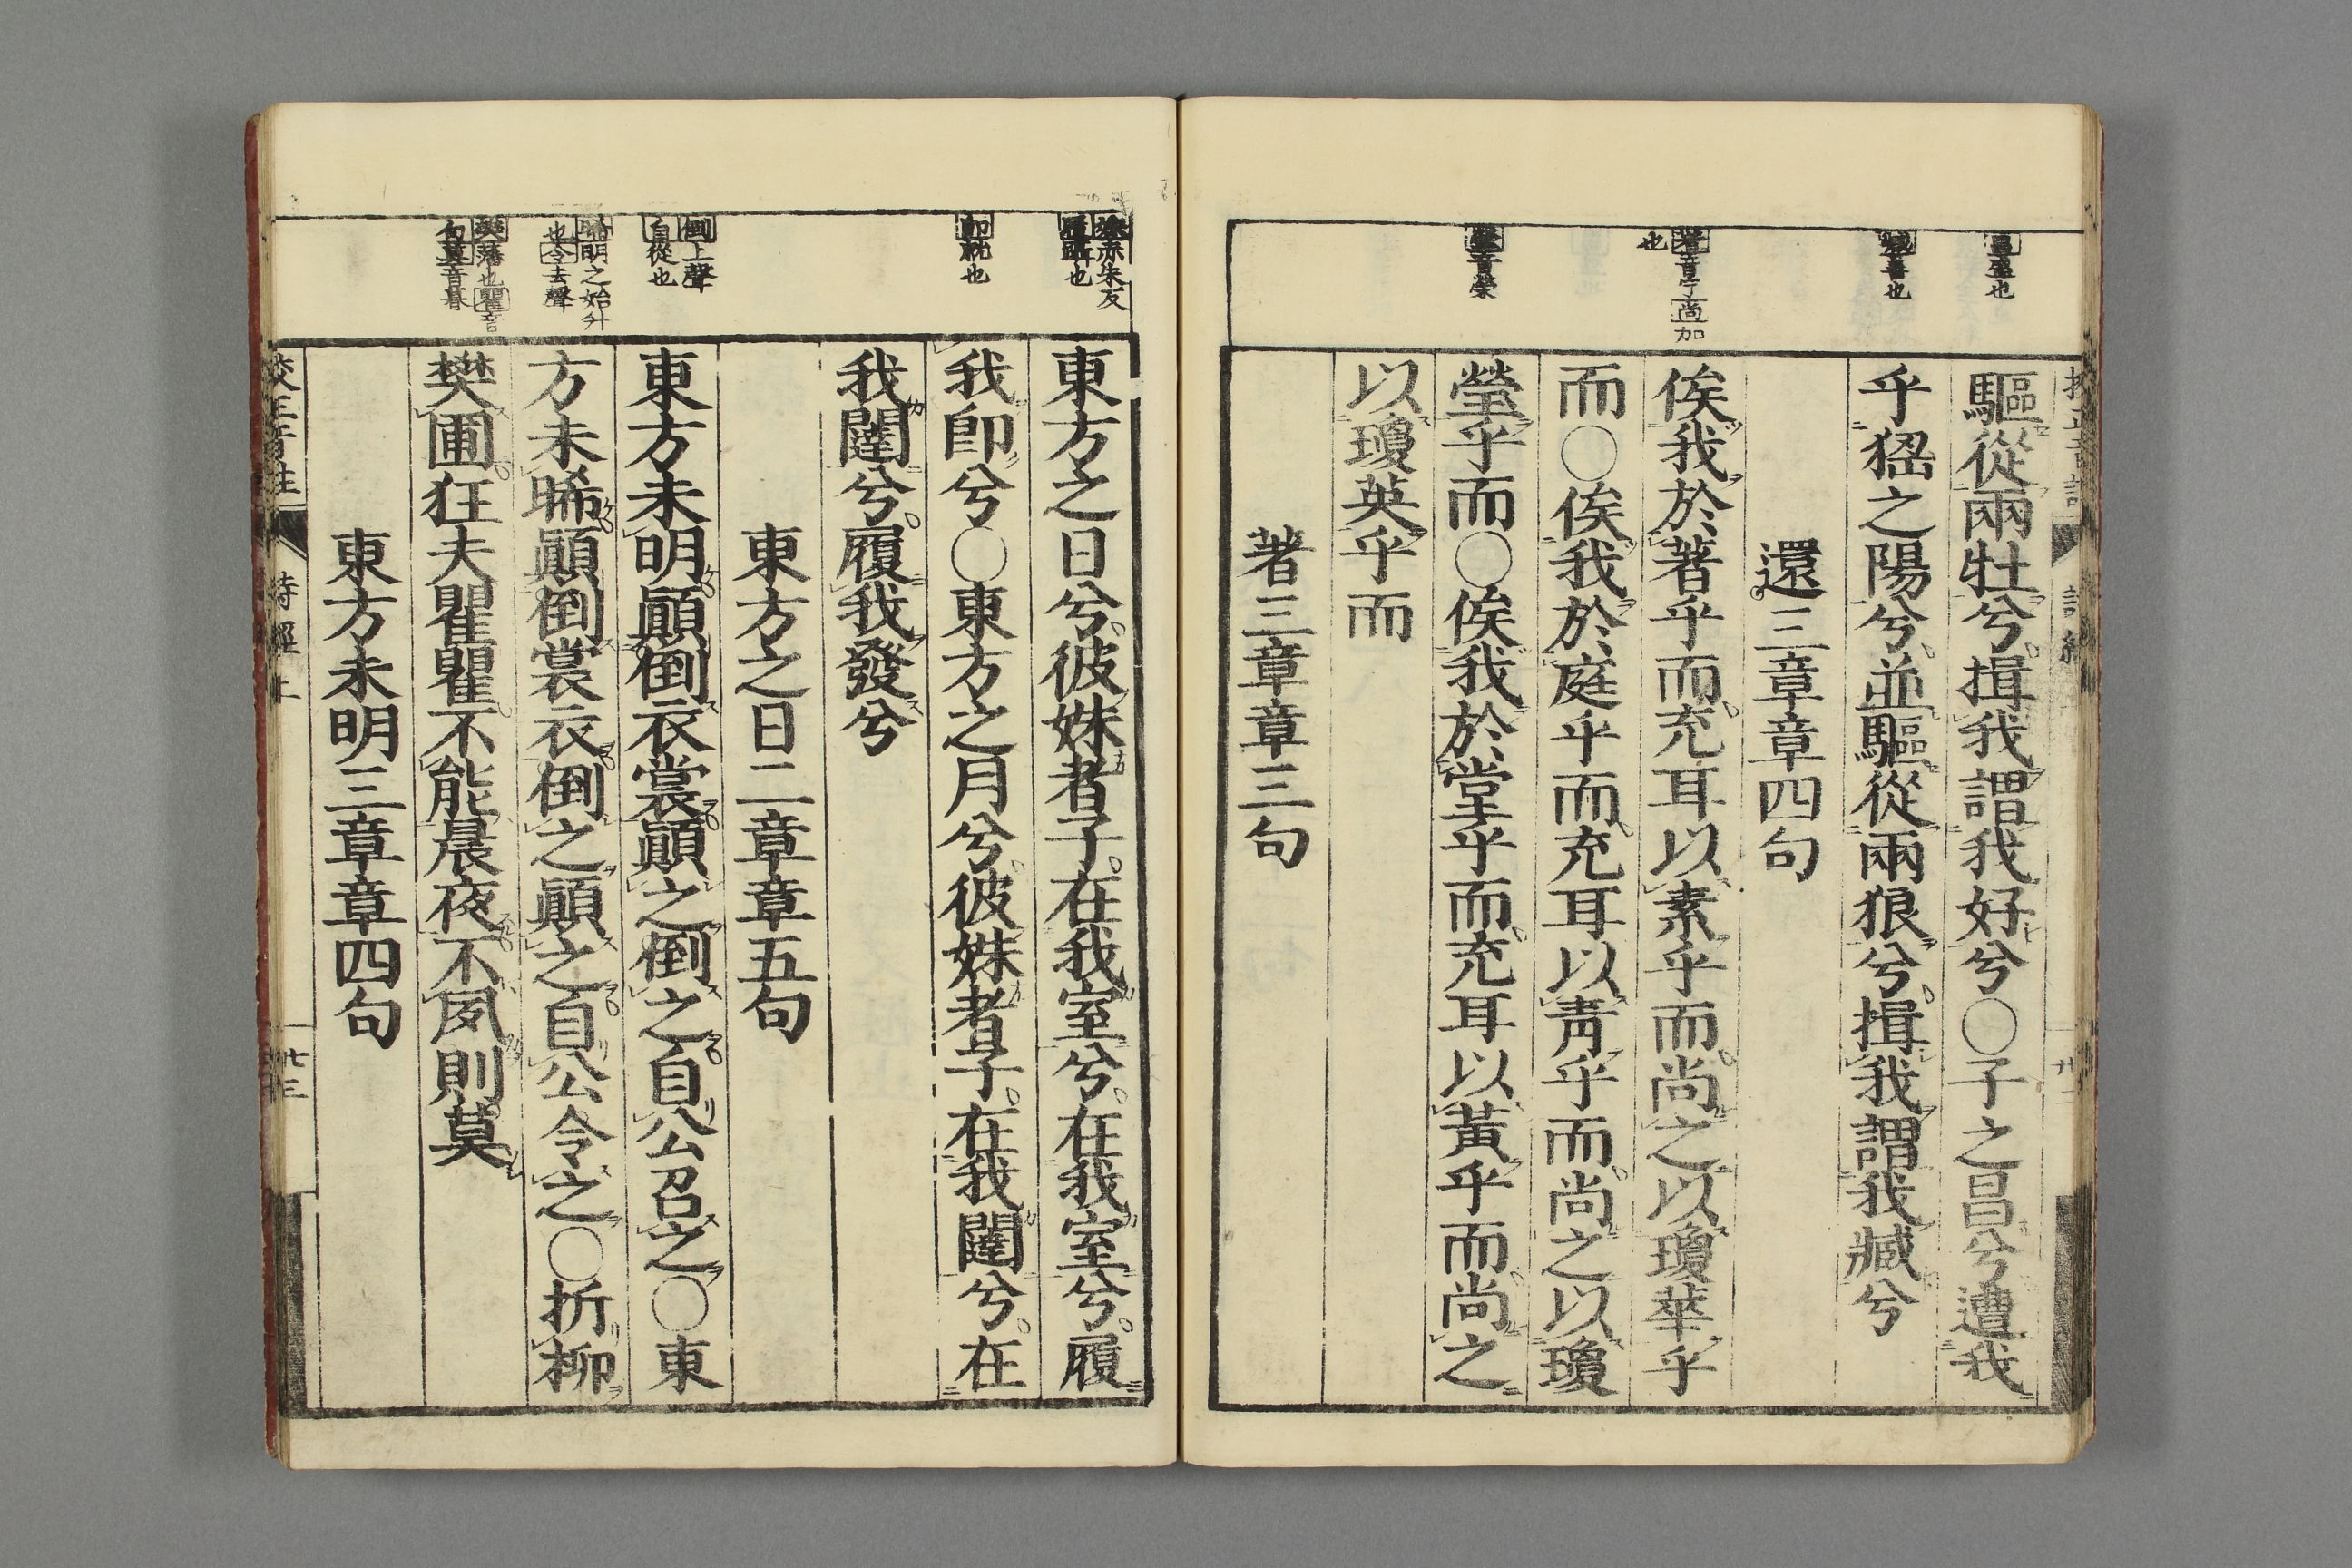 昌盛也
臧善也
著音宁尚加
也
瑩音榮
驅從兩牡兮揖我謂我好兮○子之昌兮遭我
乎猺之陽兮並驅從兩狼兮揖我謂我臧兮
還三章章四句
俟我於著乎而充耳以素乎而尚之以瓊華乎
而○俟我於庭乎而充耳以靑乎而尚之以瓊
瑩乎而○俟我於堂乎而充耳以黃乎而尚之
以瓊英乎而
著三章章三句
朱反
履躡也
卽就也
倒上聲
自從也
晞明之始升
也令去聲
樊藩也瞿音
句莫音暮
東方之日兮彼姝者子在我室兮在我室兮履
我卽兮○東方之月兮彼姝者子在我闥兮在
我闥兮履我發兮
東方之日二章章五句
東方未明顚倒衣裳顚之倒之自公召之○東
方未晞顚倒裳衣倒之顚之自公令之○折柳
樊圃狂夫瞿瞿不能晨夜不夙則莫
東方未明三章章四句
校正音註 詩經上 廿三